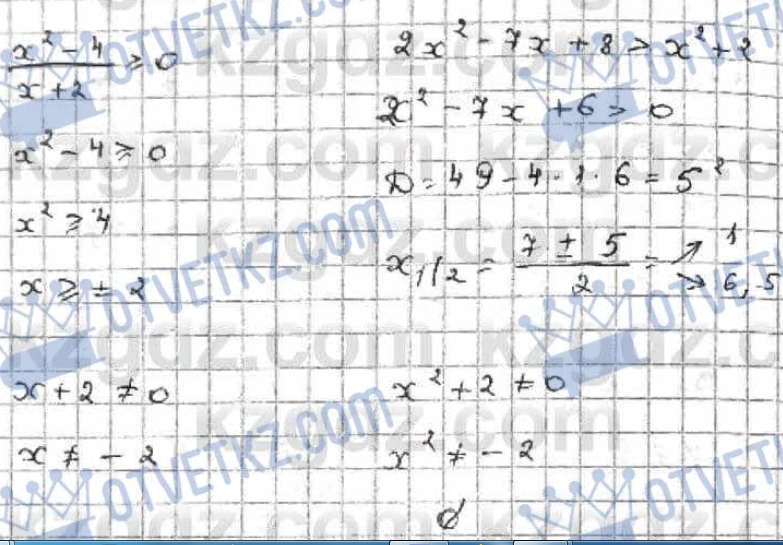 x² - 4 / x + 2 ≥ 0
x² - 4 ≥ 0
x² ≥ 4
x ≥ ± 2
x + 2 ≠ 0
x ≠ - 2
2x² - 7x + 8 > x² + 2
x² - 7x + 6 > 0
D = 49 - 4 · 1 · 6 = 5²
x₁/₂ = 7 ± 5 / 2 = ↗ 1 ↘ 6,5
x² + 2 ≠ 0
x² ≠ - 2
OTVETKZ.COM
kzgdz.com